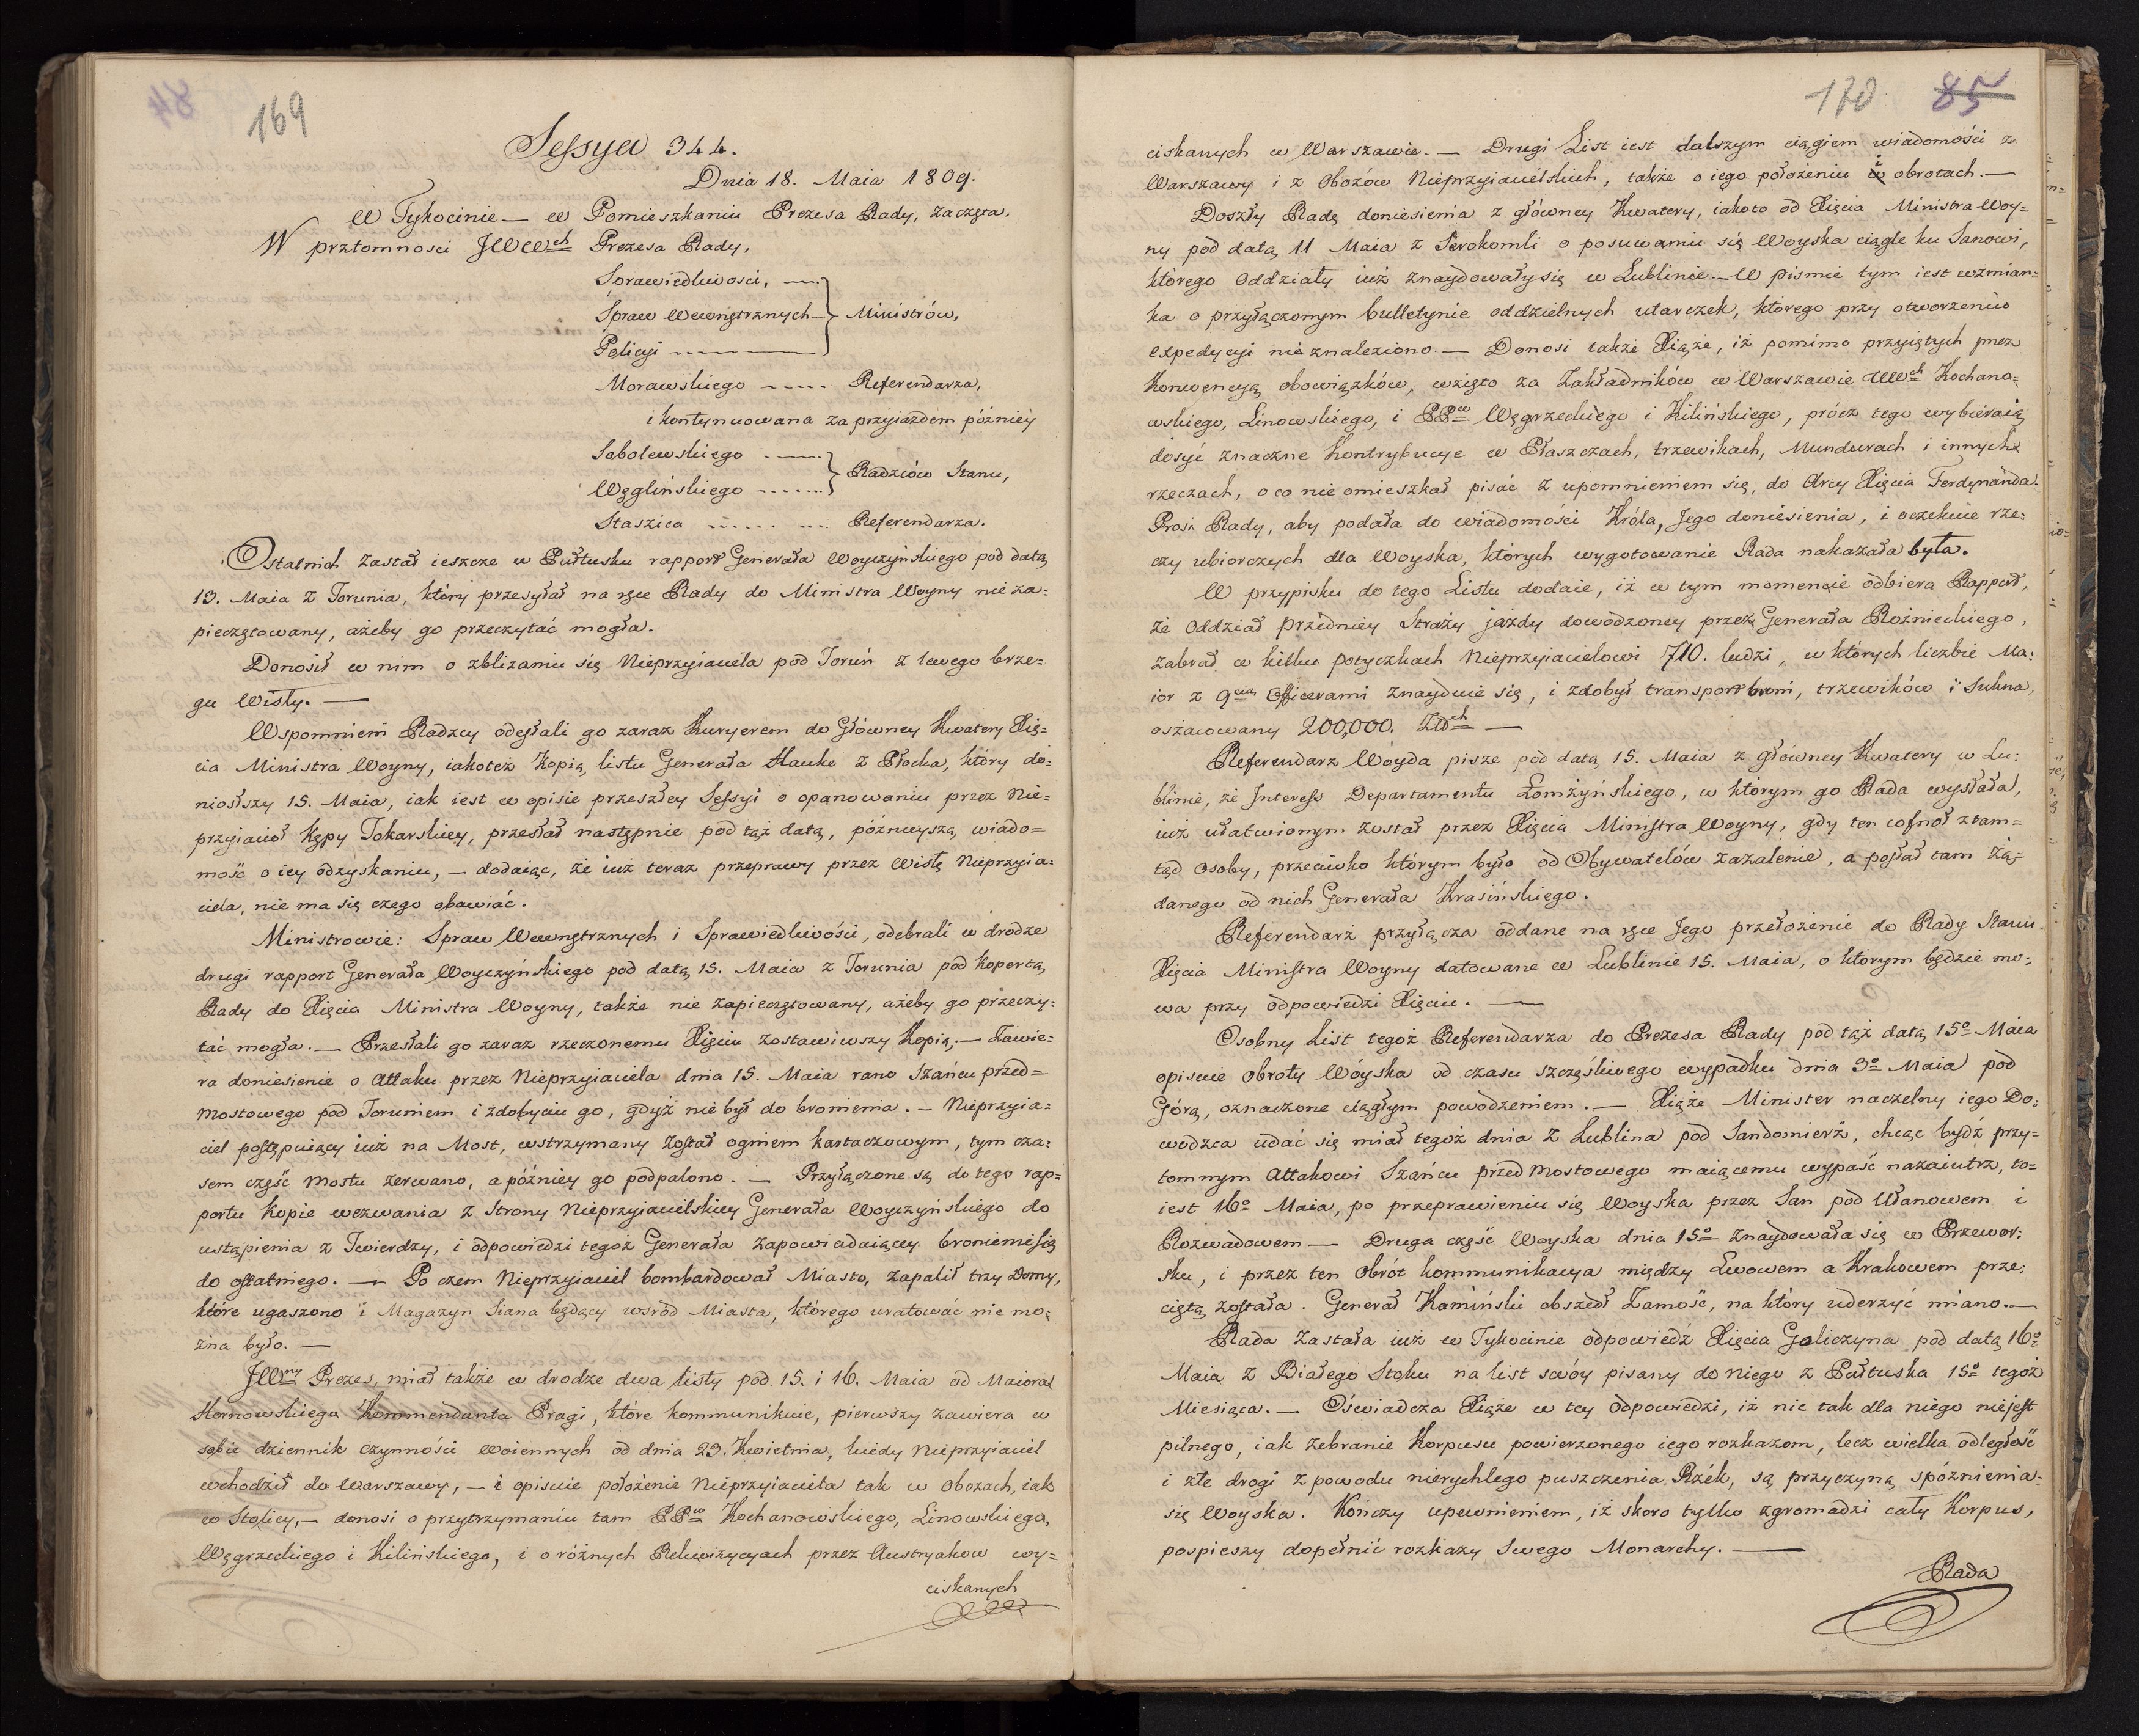 169
Sessya 344.
Dnia 18. Maia 1809.
W Tykocinie — w Pomieszkaniu Prezesa Rady, zaczęta.
W prztomnosci JWWch Prezesa Rady,
Sprawiedliwości,
Spraw Wewnętrznych — Ministrów,
Policyi
Morawskiego ..... Referendarza,
i kontynuowana za przyiazdem późniey
Sobolewskiego
Węglińskiego ...... Radzców Stanu,
Staszica ...... ... Referendarza.
Ostatnich zastał ieszcze w Pułtusku rapport Generała Woyczyńskiego pod datą
13. Maia z Torunia, który przesyłał na ręce Rady do Ministra Woyny nie za=
pieczętowany, ażeby go przeczytać mogła.
Donosił w nim o zbliżaniu się Nieprzyiaciela pod Toruń z lewego brze=
gu Wisły. —
Wspomnieni Radzcy odesłali go zaraz Kuryerem do Główney Kwatery Xię=
cia Ministra Woyny, iakoteż Kopią listu Generała Hauke z Płocka, który do=
niosłszy 15. Maia, iak iest w opisie przeszłey Sessyi o opanowaniu przez Nie=
przyiaciół Kępy Tokarskiey, przesłał następnie pod tąż datą, poźnieyszą wiado=
mość o iey odzyskaniu, — dodaiąc, że iuż teraz przeprawy przez Wisłę Nieprzyia=
ciela, nie ma się czego obawiać.
Ministrowie: Spraw Wewnętrznych i Sprawiedliwości, odebrali w drodze
drugi rapport Generała Woyczyńskiego pod datą 15. Maia z Torunia pod kopertą
Rady do Xięcia Ministra Woyny, także nie zapieczętowany, ażeby go przeczy=
tać mogła. — Przesłali go zaraz rzeczonemu Xięciu zostawiwszy Kopią. — Zawie=
ra doniesienie o Attaku przez Nieprzyiaciela dnia 15. Maia rano Szańcu przed=
mostowego pod Toruniem i zdobyciu go, gdyż nie był do bronienia. — Nieprzyia=
ciel postępuiący iuż na Most, wstrzymany został ogniem kartaczowym, tym cza=
sem część Mostu zerwano, a późniey go podpalono. — Przyłączone są do tego rap=
portu Kopie wezwania z Strony Nieprzyiacielskiey Generała Woyczyńskiego do
ustąpienia z Twierdzy, i odpowiedzi tegoż Generała zapowiadaiącey bronienie się
do ostatniego. — Po czem Nieprzyiaciel bombardował Miasto, zapalił trzy Domy,
które ugaszono i Magazyn Siana będący wsród Miasta, którego uratować nie mo=
żna było. —
JWny Prezes, miał także w drodze dwa listy pod 15. i 16. Maia od Maiora
Hornowskiego Kommendanta Pragi, które kommunikuie, pierwszy zawiera w
sobie dziennik czynności woiennych od dnia 23. Kwietnia, kiedy Nieprzyiaciel
wchodził do Warszawy, — i opisuie położenie Nieprzyiaciela tak w Obozach, iak
w Stolicy, — donosi o przytrzymaniu tam PPw Kochanowskiego, Linowskiego,
Węgrzeckiego i Kilińskiego, i o różnych Rekwizycyach przez Austryakow wy=
ciskanych
170 85
ciskanych w Warszawie. — Drugi List iest dalszym ciągiem wiadomości z
Warszawy i z Obozów Nieprzyiacielskich, także o iego położeniu i obrotach. —
Doszły Radę doniesienia z główney Kwatery, iakoto od Xięcia Ministra Woy=
ny pod datą 11 Maia z Serokomli o posuwaniu się Woyska ciągle ku Sanowi,
którego Oddziały iuż znaydowały się w Lublinie. — W pismie tym iest wzmian=
ka o przyłączonym bulletynie oddzielnych utarczek, którego przy otworzeniu
expedycyi nie znaleziono. — Donosi także Xiąże, iż pomimo przyiętych przez
Konwencyą obowiązków, wzięto za Zakładników w Warszawie JWWch Kochano=
wskiego, Linowskiego, i PPw Węgrzeckiego i Kilińskiego, prócz tego wybieraią
dosyć znaczne Kontrybucye w Płaszczach, trzewikach, Mundurach i innych
rzeczach, o co nie omieszkał pisać z upomnieniem się, do Arcy Xięcia Ferdynanda.
Prosi Rady, aby podała do wiadomości Króla, Jego doniesienia, i oczekuie rze=
czy ubiorczych dla Woyska, których wygotowanie Rada nakazała była.
W przypisku do tego Listu dodaie, iż w tym momencie odbiera Rapport,
że Oddział przedniey Straży jazdy dowodzoney przez Generała Rożnieckiego,
zabrał w kilku potyczkach Nieprzyiacielowi 710. ludzi, w których liczbie Ma=
ior z 9cią Officerami znayduie się, i zdobył transport broni, trzewików i Sukna,
oszacowany 200,000. Złłch —
Referendarz Woyda pisze pod datą 15. Maia z główney Kwatery w Lu=
blinie, że Interess Departamentu Łomżyńskiego, w którym go Rada wysłała,
iuż ułatwionym został przez Xięcia Ministra Woyny, gdy ten cofnoł ztam=
tąd osoby, przeciwko którym było od Obywatelów zażalenie, a posłał tam żą=
danego od nich Generała Krasińskiego.
Referendarz przyłącza oddane na ręce Jego przełożenie do Rady Stanu
Xięcia Ministra Woyny datowane w Lublinie 15. Maia, o którym będzie mo=
wa przy odpowiedzi Xięciu. —
Osobny List tegoż Referendarza do Prezesa Rady pod tąż datą 15o Maia
opisuie obroty Wóyska od czasu szczęśliwego wypadku dnia 3o Maia pod
Górą, oznaczone ciągłym powodzeniem. — Xiąże Minister naczelny iego Do=
wódzca udać się miał tegoż dnia z Lublina pod Sandomierz, chcąc bydź przy=
tomnym Attakowi Szańcu przed mostowego maiącemu wypaść nazaiutrz, to=
iest 16o Maia, po przeprawieniu się Woyska przez San pod Ułanowem i
Rozwadowem — Druga część Woyska dnia 15o znaydowała się w Przewor=
sku, i przez ten Obrót kommunikacya między Lwowem a Krakowem prze=
ciętą została. Generał Kamiński obszedł Zamość, na który uderzyć miano. —
Rada zastała iuż w Tykocinie odpowiedź Xięcia Galiczyna pod datą 16o
Maia z Białego Stoku na list swóy pisany do niego z Pułtuska 15o tegoż
Miesiąca. — Oświadcza Xiąże w tey odpowiedzi, iż nic tak dla niego niejest
pilnego, iak zebranie Korpusu powierzonego iego rozkazom, lecz wielka odległość
i złe drogi z powodu nierychlego puszczenia Rzék, są przyczyną spóznienia=
się Woyska. Kończy upewnieniem, iż skoro tylko zgromadzi cały Korpus,
pospieszy dopełnić rozkazy Swego Monarchy. —
Rada